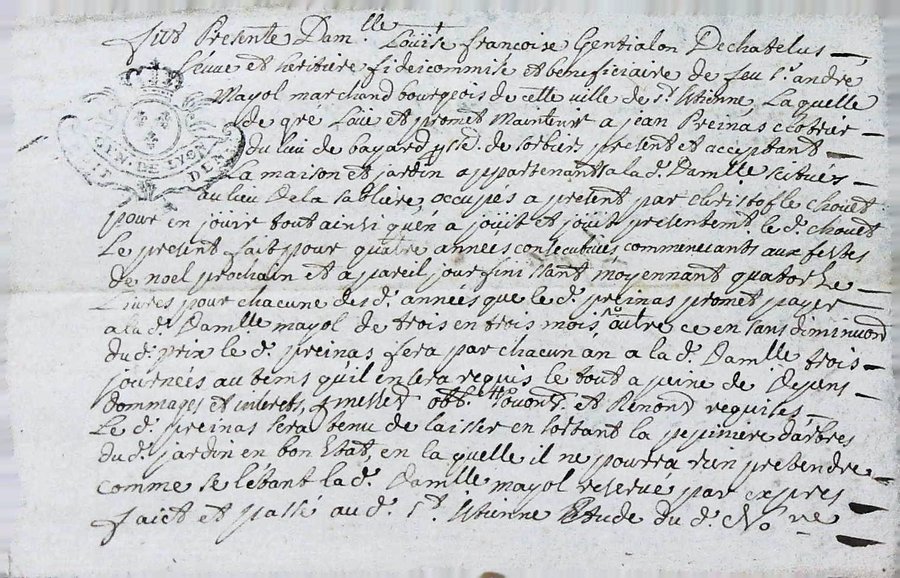 fut Presente Dam.lle Loüise francoise Gentialon Dechatelus
veuve et heritiere fideicommise et beneficiaire de feu s.r andré
Mayol marchand bourgeois de cette ville de s.t Etienne, Laquelle
de gré Loue et promet Maintenir a jean Preinas clotrier
du lieu de bayard p.sse d. de sorbier present et acceptant
La maison et jardin appartenants a lad. Dam.lle scitues
au lieu De la sabliere, occupés a present par christofle chouet
pour en jouir tout ainsi qu'en a joüit et joüit presentem.t le d. chouet
Le present fait pour quatre années consecutives commencants aux festes
de noel prochain et a pareil jour finissant moyennant quatorse
Livres pour chacune des d. années que le d. preinas promet payer
a la d. Damlle mayol de trois en trois mois, outre ce en sans diminuon
du d. prix le d. preinas fera par chacun an a la d. Damlle trois
journées au tems qu'il en sera requis le tout a peine de Depens
dommages et interets, et Renon.s requises
Le d. preinas sera tenu de laisser en sortant la pepiniere d'arbres
du d. jardin en bon Estat, en la quelle il ne pourra rien pretendre
comme se l'étant la d. Damlle mayol reservé par expres
faict et passé au d. s.t Etienne Etude du d. No.re
GEN. DE LYON